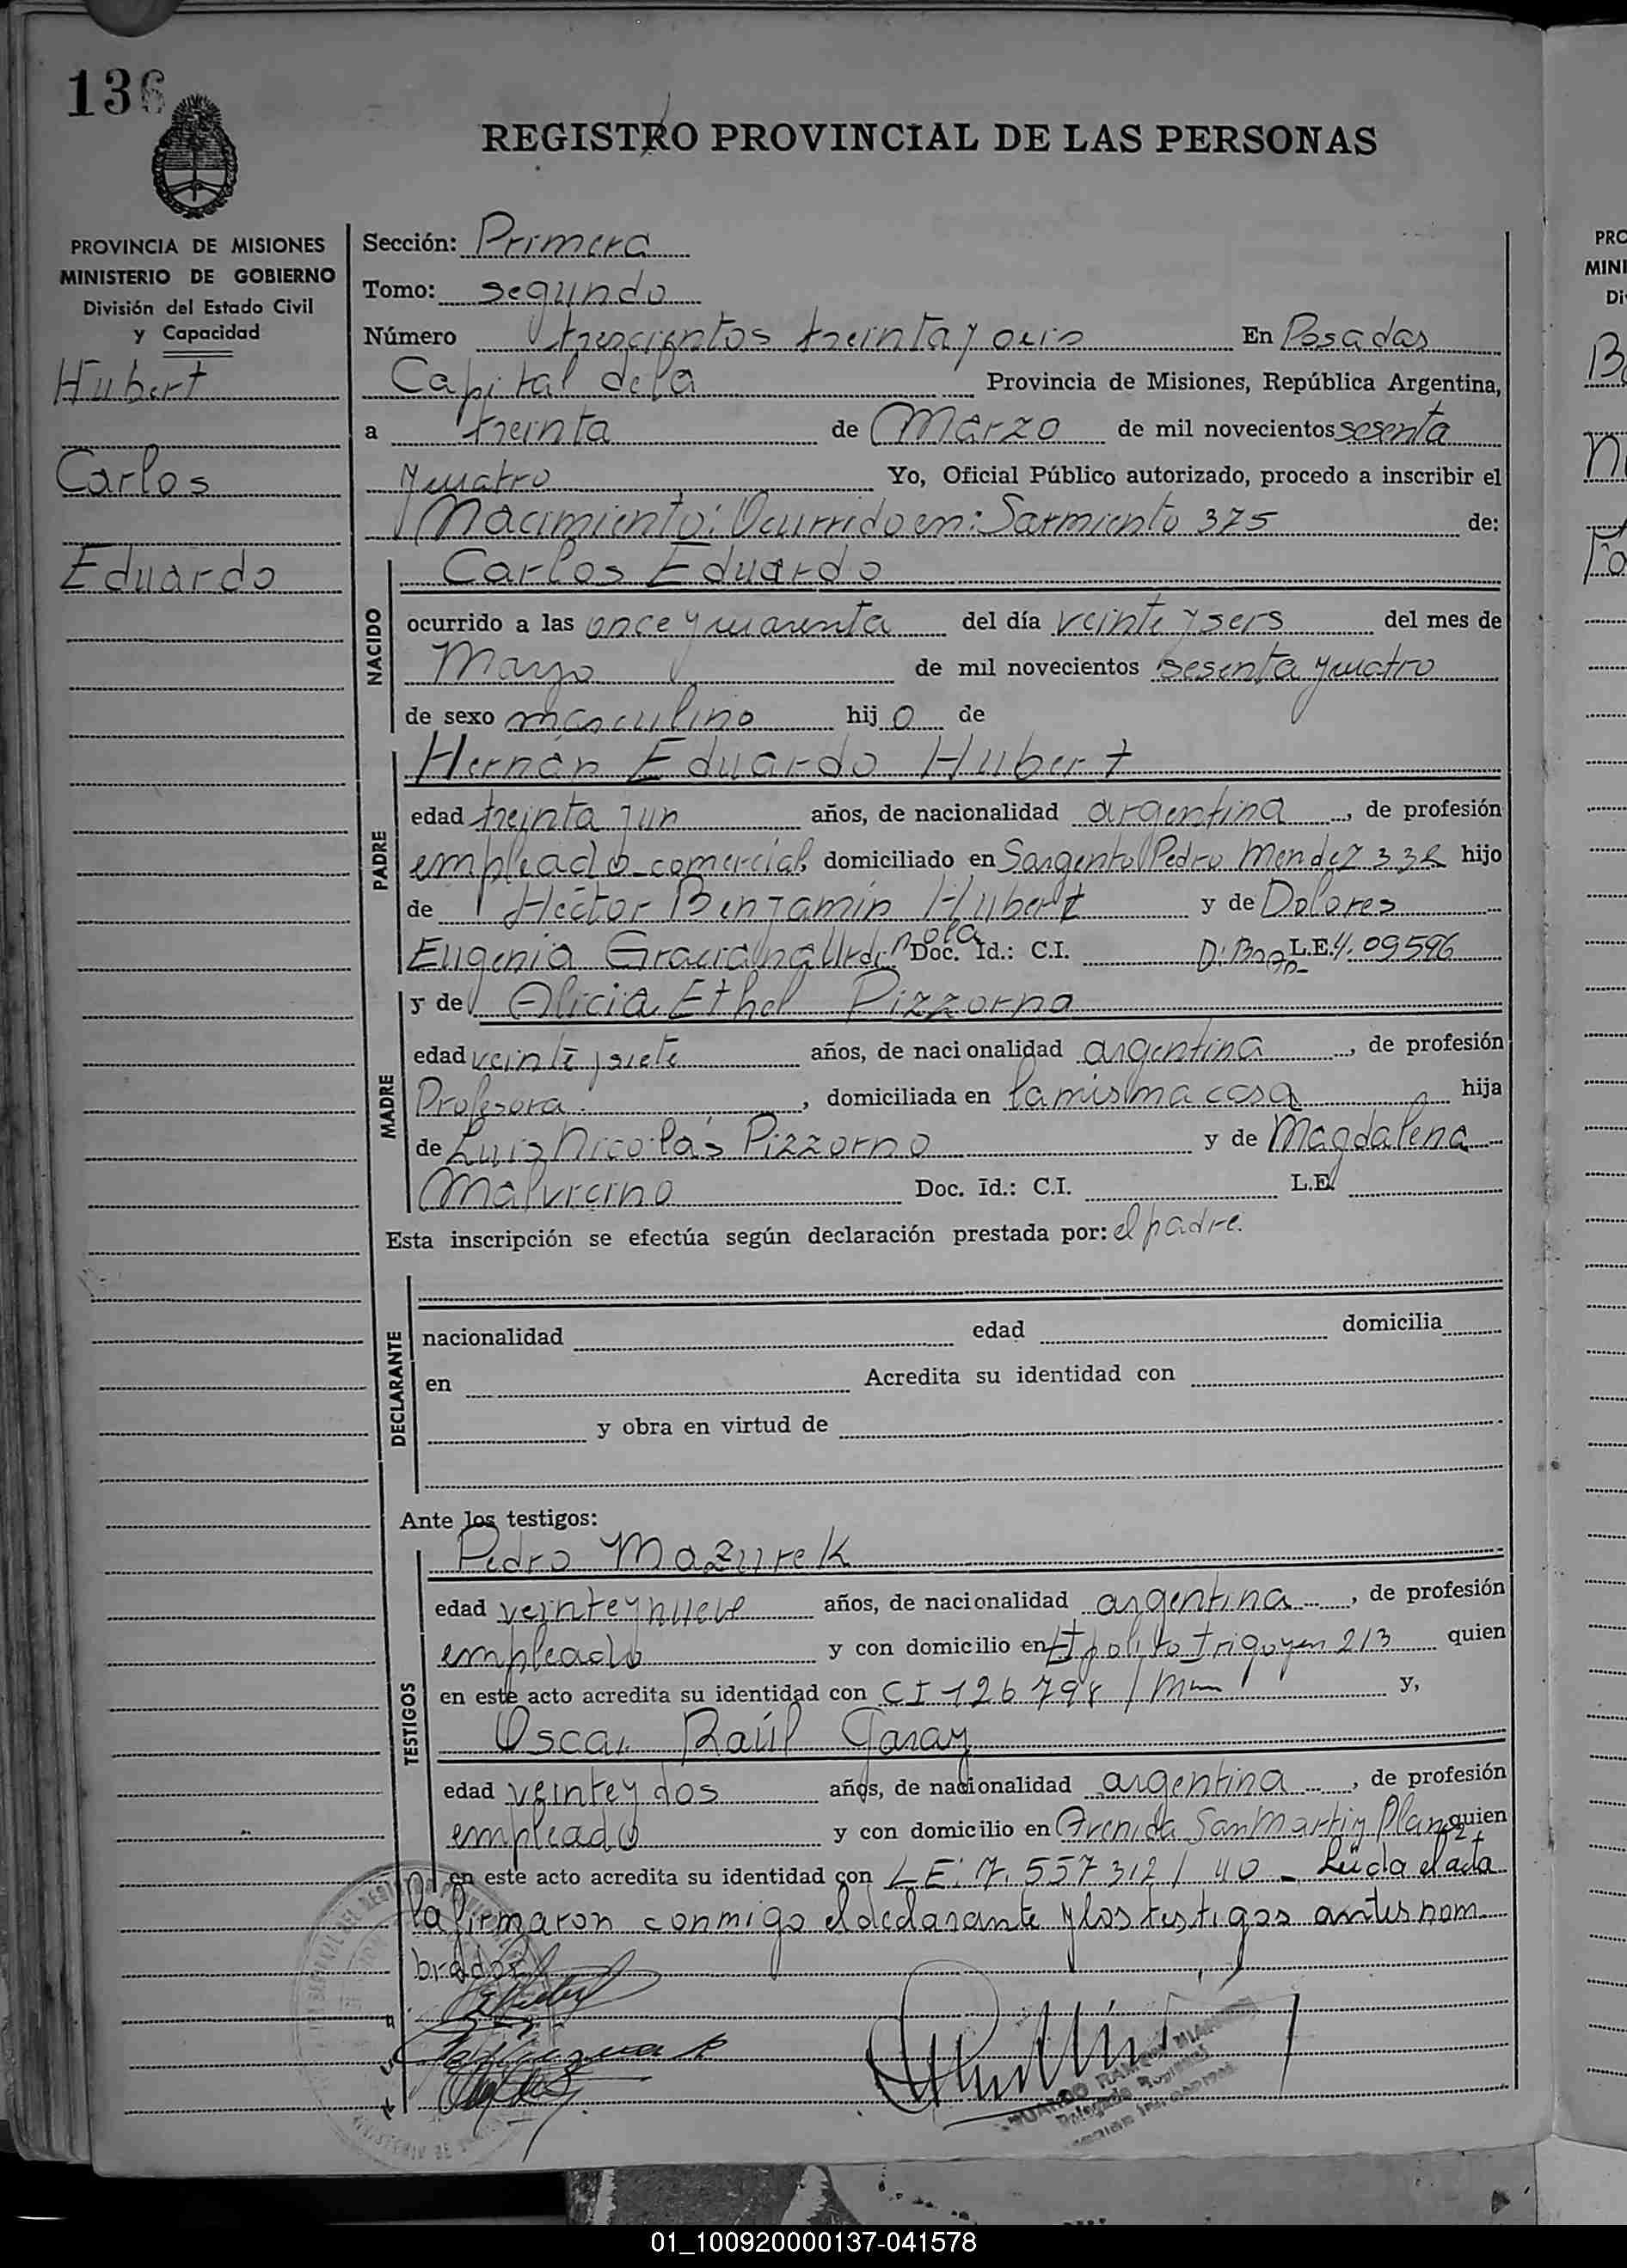 136
REGISTRO PROVINCIAL DE LAS PERSONAS
PROVINCIA DE MISIONES
MINISTERIO DE GOBIERNO
División del Estado Civil
y Capacidad
Hubert
Carlos
Eduardo
Sección: Primera
Tomo: segundo
Número trescientos treinta y En Posadas
Capital de la Provincia de Misiones, República Argentina,
a treinta de Marzo de mil novecientos sesenta
y cuatro Yo, Oficial Público autorizado, procedo a inscribir el
Nacimiento: Ocurrido en: Sarmiento 375 de:
NACIDO
Carlos Eduardo
ocurrido a las once y cuarenta del día veinte y seis del mes de
Mayo de mil novecientos sesenta y cuatro
de sexo masculino hijo de
PADRE
Hernán Eduardo Hubert
edad treinta y un años, de nacionalidad argentina, de profesión
empleado comercial domiciliado en Sargento Pedro Mendez hijo
de Héctor Benjamín Hubert y de Dolores
Eugenia Doc. Id.: C.I. L.E. 4.09596
MADRE
y de Alicia Ethel Pizzorno
edad veinte y siete años, de nacionalidad argentina, de profesión
Profesora, domiciliada en la misma casa hija
de Luis Nicolás Pizzorno y de Magdalena
Malvicino Doc. Id.: C.I. L.E.
Esta inscripción se efectúa según declaración prestada por: el padre.
DECLARANTE
nacionalidad edad domicilia
en Acredita su identidad con
y obra en virtud de
Ante los testigos:
TESTIGOS
Pedro Mazurek
edad veinte y nueve años, de nacionalidad argentina, de profesión
empleado y con domicilio en Hipolito Irigoyen 213 quien
en este acto acredita su identidad con CI 126 798 y,
Oscar Raúl Garay
edad veinte y dos años, de nacionalidad argentina, de profesión
empleado y con domicilio en Avenida San Martin quien
en este acto acredita su identidad con LE: 7.557 312 / 40 - Leida el acta
la firmaron conmigo el declarante y los testigos antes nom
brados
01_100920000137-041578